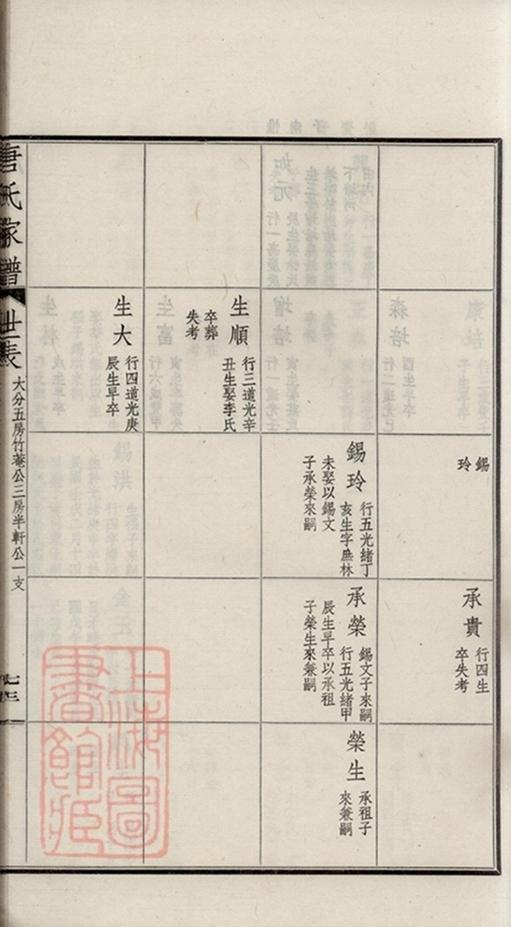 錫
玲
承貴
行四生
卒失考
錫玲
行五光緒丁
亥生字廡林
未娶以錫文
子承榮來嗣
承榮
錫文子來嗣
行五光緒甲
辰生早卒以承祖
子榮生來兼嗣
榮生
承祖子
來兼嗣
生順
行三道光辛
丑生娶李氏
卒葬
失考
生大
行四道光庚
辰生早卒
唐氏家譜
世表
大分五房竹菴公三房半軒公一支
上海圖
書館藏